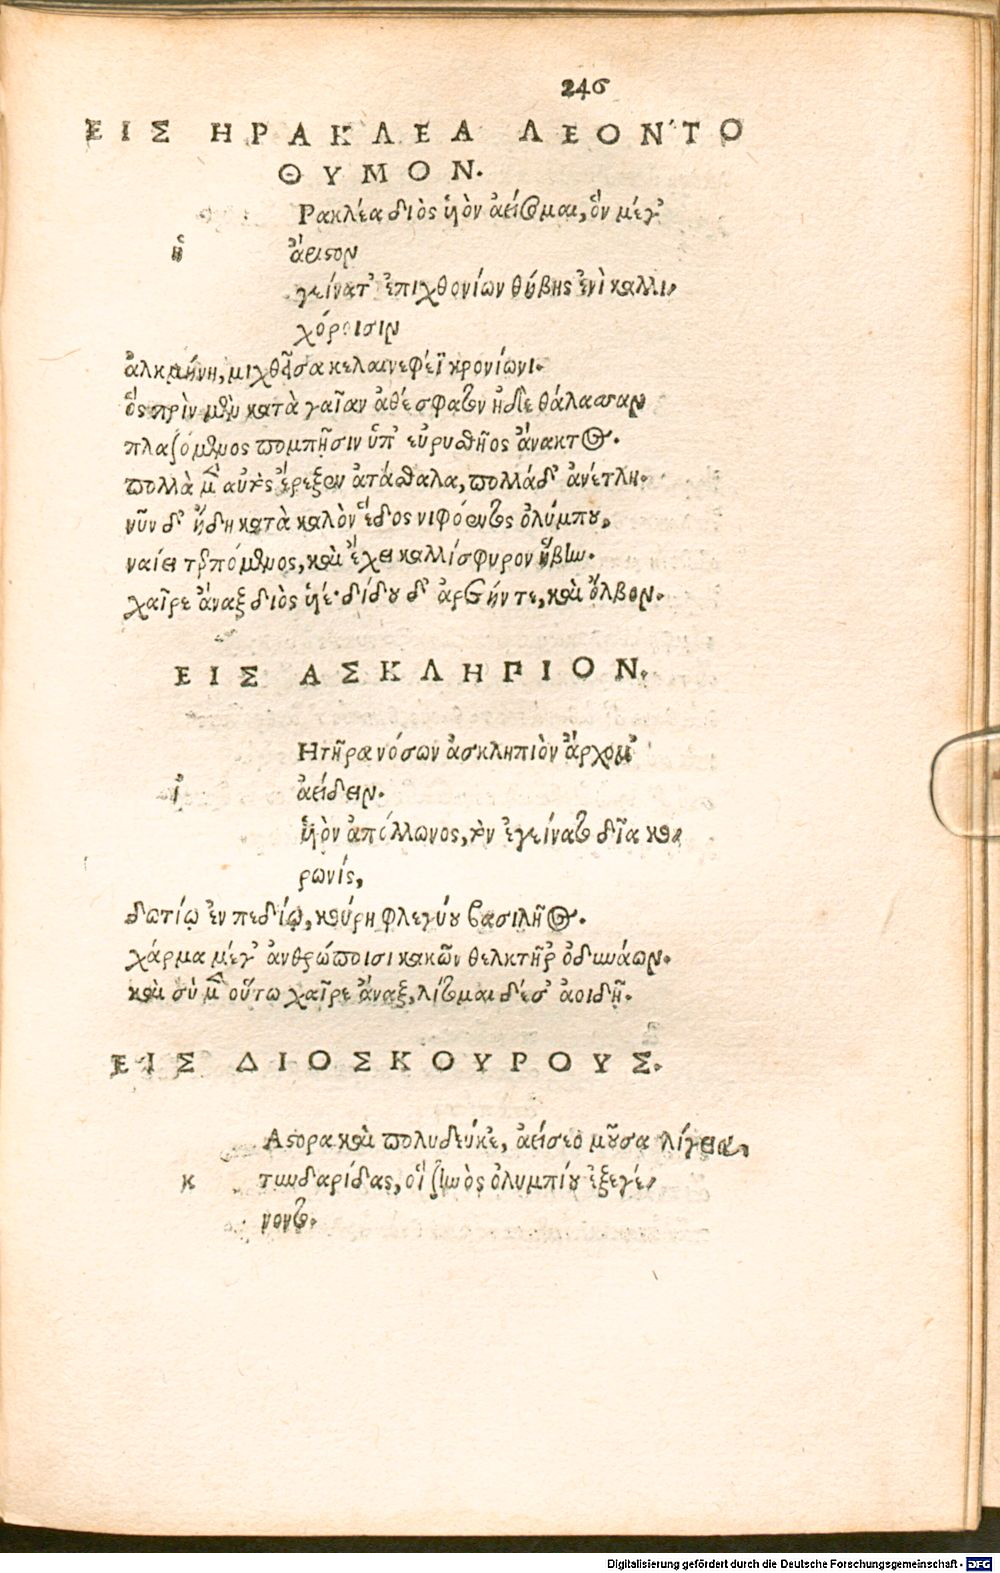 246
ΕΙΣ ΗΡΑΚΛΕΑ ΛΕΟΝΤΟ
ΘΥΜΟΝ.
Ρακλέα διὸς ἱὸν ἀείσομαι, ὃν μέγ'
ἡ ἄριστον
γείνατ' ἐπιχθονίων θήβης ἐνὶ καλλι
χόροισιν
ἀλκμήνη, μιχθεῖσα κελαινεφέϊ κρονίωνι.
ὃς πρὶν μὲν κατὰ γαῖαν ἀθέσφατον ἠδὲ θάλασσαν
πλαζόμενος πομπῇσιν ὑπ' εὐρυσθῆος ἄνακτος.
πολλὰ μὲν αὐτὸς ἔρεξεν ἀτάσθαλα, πολλὰ δ' ἀνέτλη.
νῦν δ' ἤδη κατὰ καλὸν ἕδος νιφόεντος ὀλύμπου,
ναίει τερπόμενος, καὶ ἔχει καλλίσφυρον ἥβην.
χαῖρε ἄναξ διὸς ἱέ. δίδου δ' ἀρετήν τε, καὶ ὄλβον.
ΕΙΣ ΑΣΚΛΗΠΙΟΝ.
Ητῆρα νόσων ἀσκληπιὸν ἄρχομ'
ἰ ἀείδειν.
ἱὸν ἀπόλλωνος, τὸν ἐγείνατο δῖα κο
ρωνίς,
δωτίῳ ἐν πεδίῳ, κούρη φλεγύου βασιλῆος.
χάρμα μέγ' ἀνθρώποισι κακῶν θελκτῆρ' ὀδυνάων.
καὶ σὺ μὲν οὕτω χαῖρε ἄναξ, λίτομαι δέ σ' ἀοιδῇ.
ΕΙΣ ΔΙΟΣΚΟΥΡΟΥΣ.
Αστορα καὶ πολυδεύκε', ἀείσεο μοῦσα λίγεια,
κ τυνδαρίδας, οἳ ζηνὸς ὀλυμπίου ἐξεγέ
νοντο.
Digitalisierung gefördert durch die Deutsche Forschungsgemeinschaft - DFG